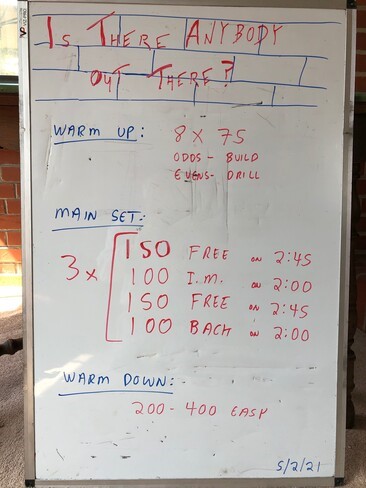 IS THERE ANYBODY
OUT THERE?
WARM UP: 8 X 75
ODDS- BUILD
EVENS- DRILL
MAIN SET:-
3 x
150 FREE ON 2:45
100 I.M. ON 2:00
150 FREE ON 2:45
100 BACH ON 2:00
WARM DOWN:-
200- 400 EASY
5/2/21